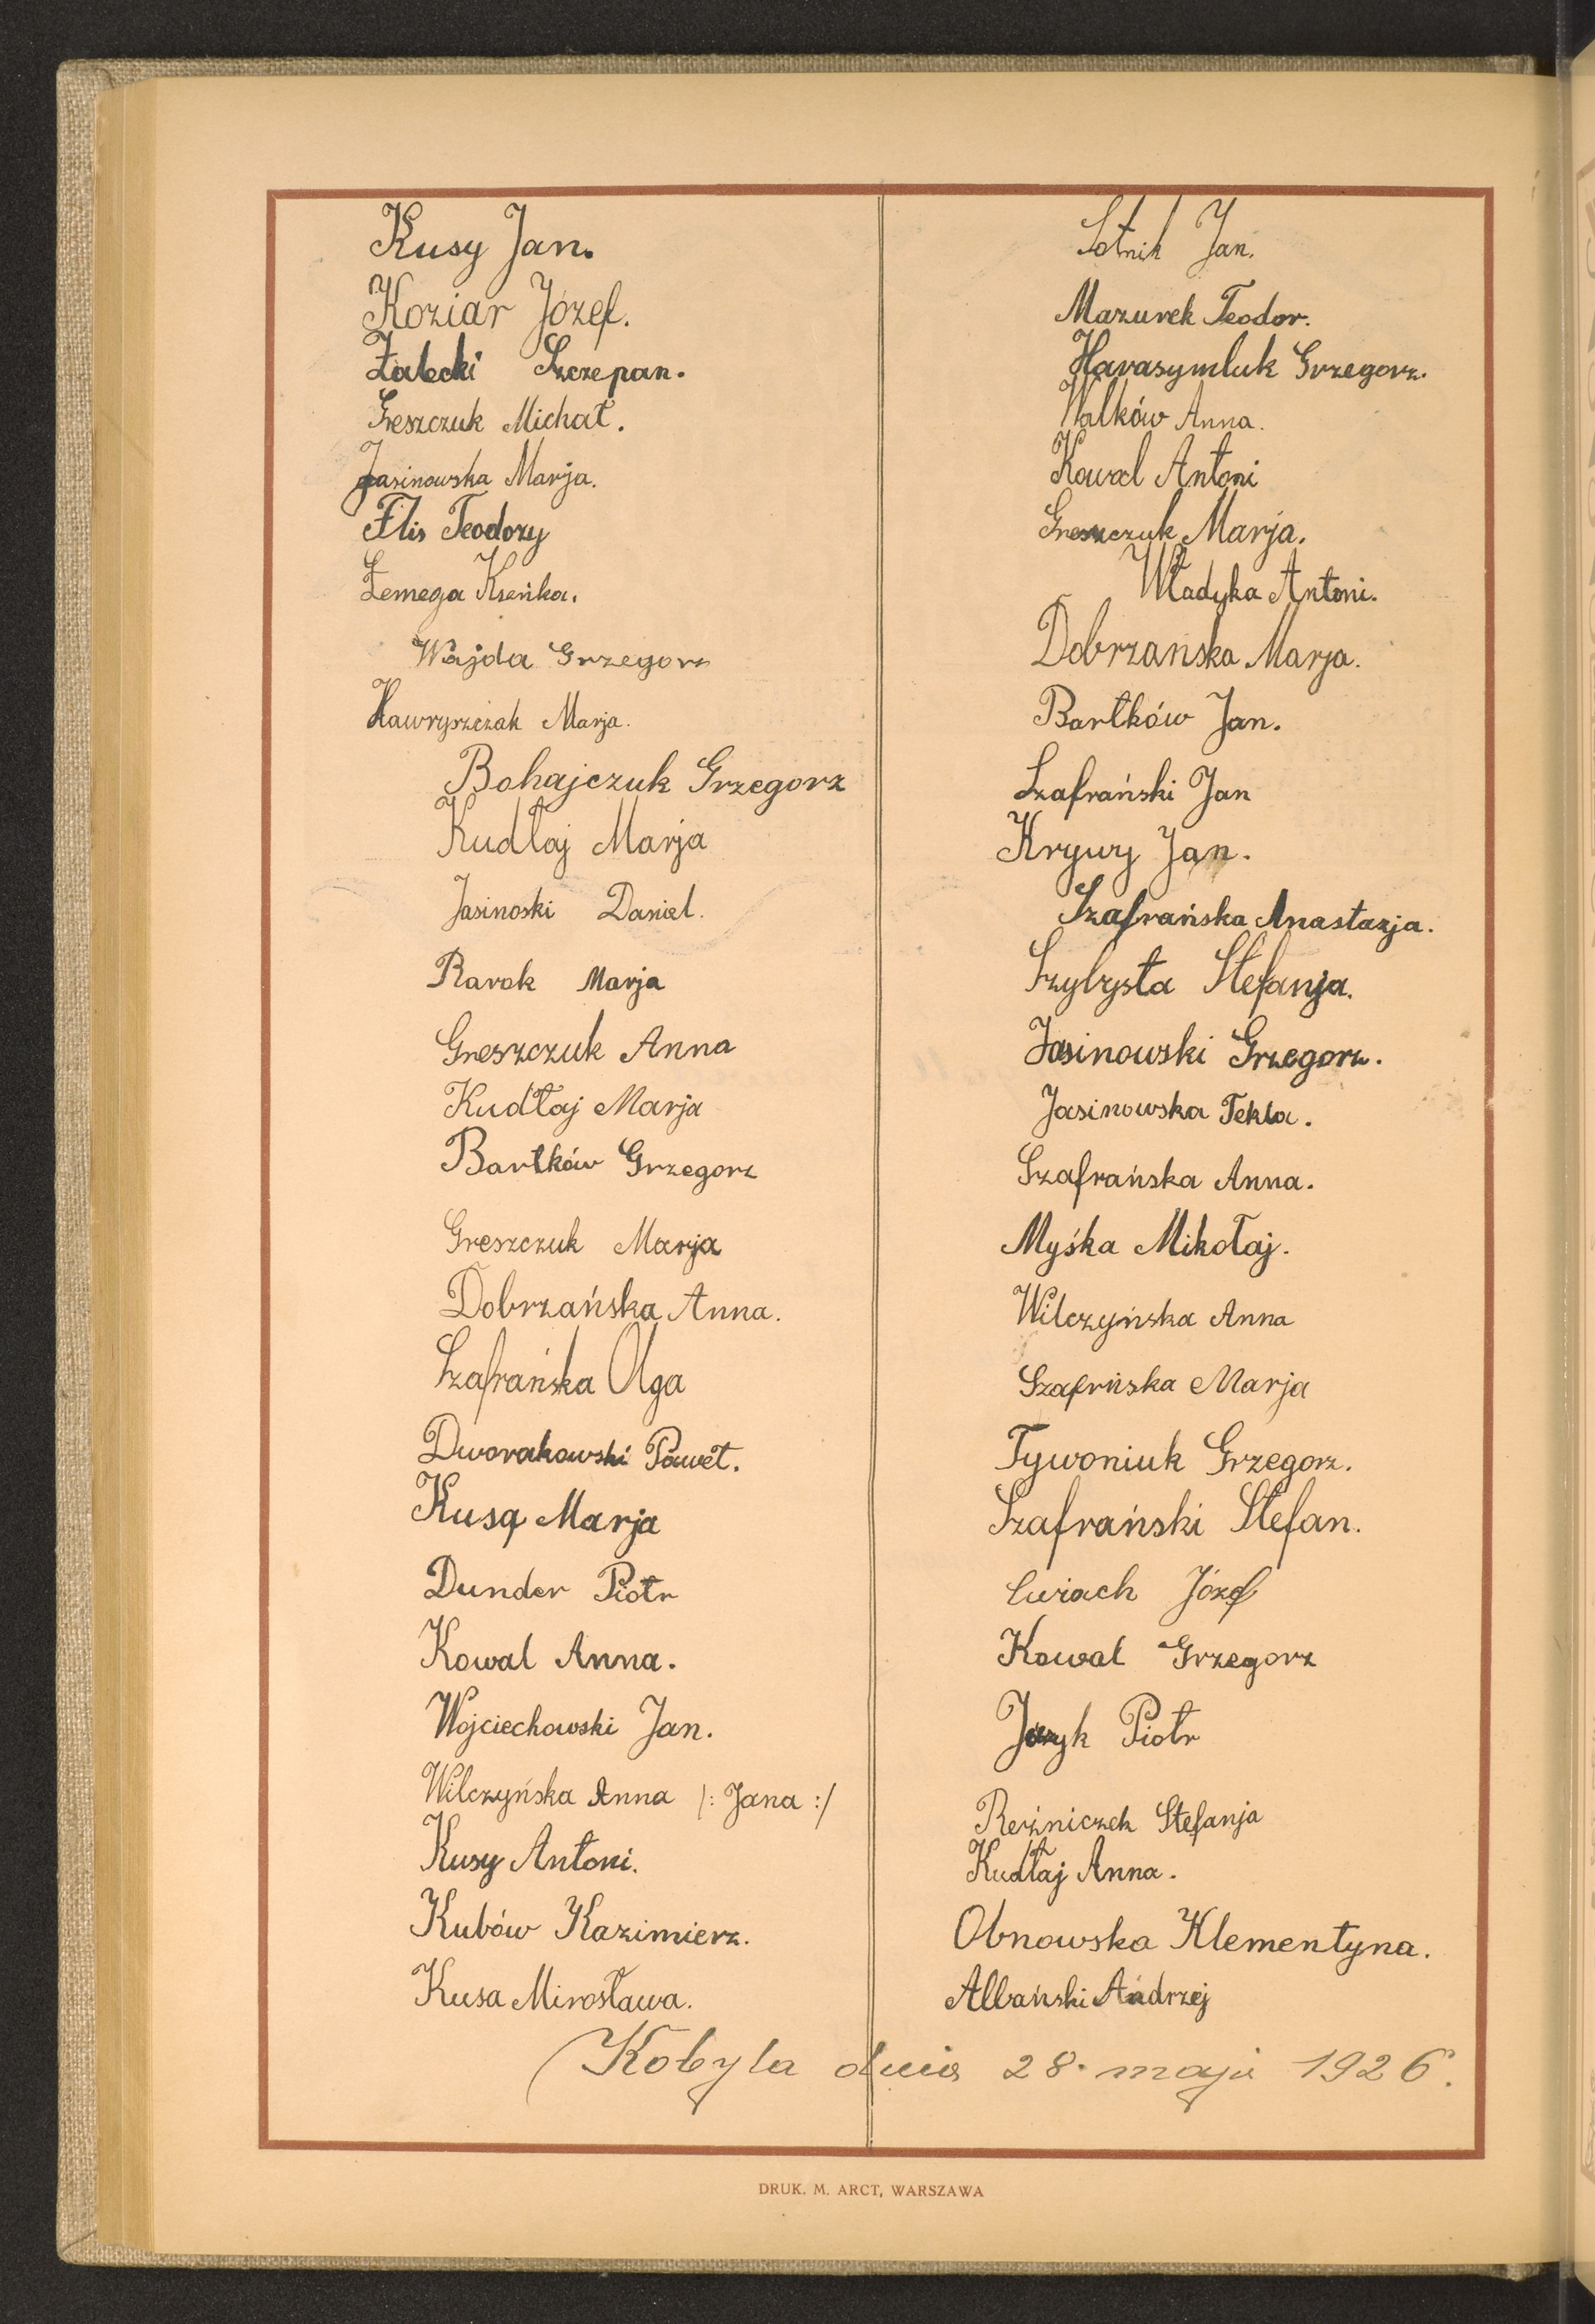 Kusy Jan.
Koziar Józef.
Załecki Szczepan.
Greszczuk Michał.
Jasinowska Marja.
Flis Teodozy
Żemega Kseńka.
Wajda Grzegorz
Hawryszczak Marja.
Bohajczuk Grzegorz
Kudłaj Marja
Jasinoski Daniel.
Rarok Marja
Greszczuk Anna
Kudłaj Marja
Bartków Grzegorz
Greszczuk Marja
Dobrzańska Anna.
Szafrańska Olga
Dworakowski Paweł.
Kusą Marja
Dunder Piotr
Kowal Anna.
Wojciechowski Jan.
Wilczyńska Anna /: Jana :/
Kusy Antoni.
Kubów Kazimierz.
Kusa Mirosława.
Sotnik Jan.
Mazurek Teodor.
Harasymluk Grzegorz.
Walków Anna.
Kowal Antoni
Greszczuk Marja.
Władyka Antoni.
Dobrzańska Marja.
Bartków Jan.
Szafrański Jan
Krywy Jan.
Szafrańska Anastazja.
Stefanja.
Jasinowski Grzegorz.
Jasinowska Tekla.
Szafrańska Anna.
Myśka Mikołaj.
Wilczyńska Anna
Szafrńska Marja
Tywoniuk Grzegorz.
Szafrański Stefan.
Józef
Kowal Grzegorz
Piotr
Reźniczek Stefanja
Kudłaj Anna.
Obnowska Klementyna.
Albański Andrzej
Kobyla dnia 28. maja 1926.
DRUK. M. ARCT, WARSZAWA